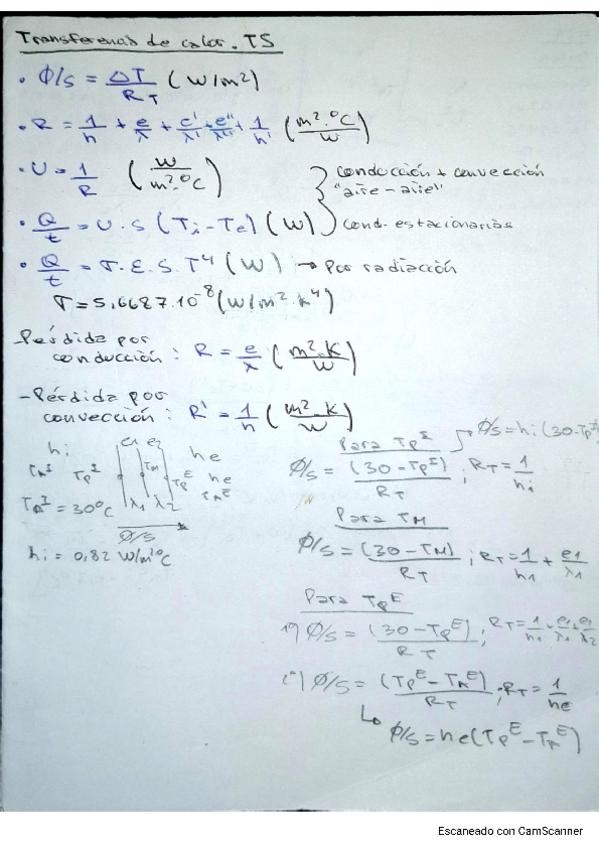 Transferencia de calor. T5
• Φ/S = ΔT/R_T (W/m²)
• R = 1/h + e/λ + e'/λ' + e''/λ'' + 1/h' (m²·ºC/W)
• U = 1/R (W/m²·ºC)
conducción + convección
"aire-aire"
• Q/t = U·S (Ti-Te) (W)
Cond. estacionarias
• Q/t = σ·E·S·T⁴ (W) → Por radiación
σ = 5,6687·10⁻⁸ (W/m²·k⁴)
-Pérdida por
conducción: R = e/λ (m²·K/W)
-Pérdida por
convección: R' = 1/h (m²·K/W)
hi e1 e2 he
T_A^I T_P^I T_M T_P^E he T_A^E
T_A^I = 30ºC λ1 λ2
Φ/S
hi = 0,82 W/m²ºC
Para T_P^I
→ Φ/S = hi (30-T_P
Φ/S = (30-T_P^I)/R_T ; R_T = 1/hi
Para T_M
Φ/S = (30-T_M)/R_T ; R_T = 1/h1 + e1/λ1
Para T_P^E
1º) Φ/S = (30-T_P^E)/R_T ; R_T =
Φ/S = (T_P^E - T_A^E)/R_T ; R_T = 1/he
↳ Φ/S = he (T_P^E - T_A^E)
Escaneado con CamScanner